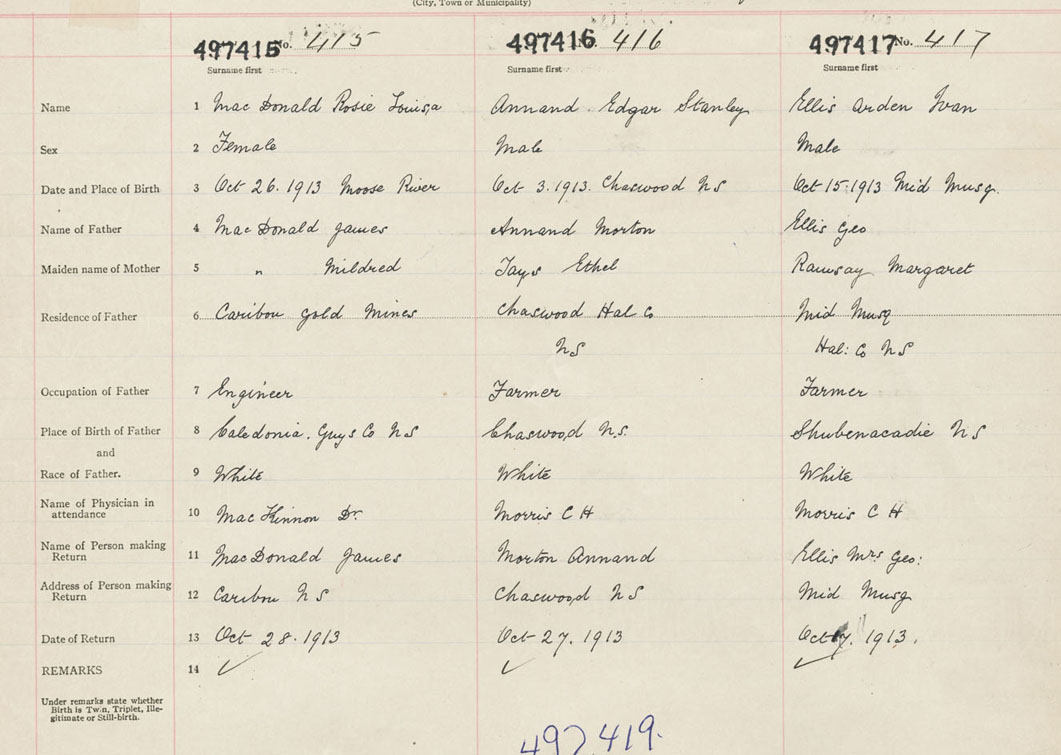 (City, Town or Municipality)
497415 No. 415 497416 416 497417 No. 417
Surname first Surname first Surname first
Name 1 MacDonald Rosie Louisa Annand Edgar Stanley Ellis Arden Ivan
Sex 2 Female Male Male
Date and Place of Birth 3 Oct 26. 1913 Moose River Oct 3. 1913. Chaswood NS Oct 15. 1913 Mid Musq.
Name of Father 4 MacDonald James Annand Morton Ellis Geo
Maiden name of Mother 5 " Mildred Ethel Ramsay Margaret
Residence of Father 6 Caribou Gold Mines Chaswood Hal Co Mid Musq
NS Hal: Co NS
Occupation of Father 7 Engineer Farmer Farmer
Place of Birth of Father 8 Caledonia. Guys Co NS Chaswood N.S. Shubenacadie NS
and
Race of Father. 9 White White White
Name of Physician in
attendance 10 MacKinnon Dr. Morris C H Morris C H
Name of Person making
Return 11 MacDonald James Morton Annand Ellis Mrs Geo:
Address of Person making
Return 12 Caribou NS Chaswood NS Mid Musq
Date of Return 13 Oct 28. 1913 Oct 27. 1913 Oct 1913.
REMARKS 14
Under remarks state whether
Birth is Twin, Triplet, Ille-
gitimate or Still-birth.
497,419.